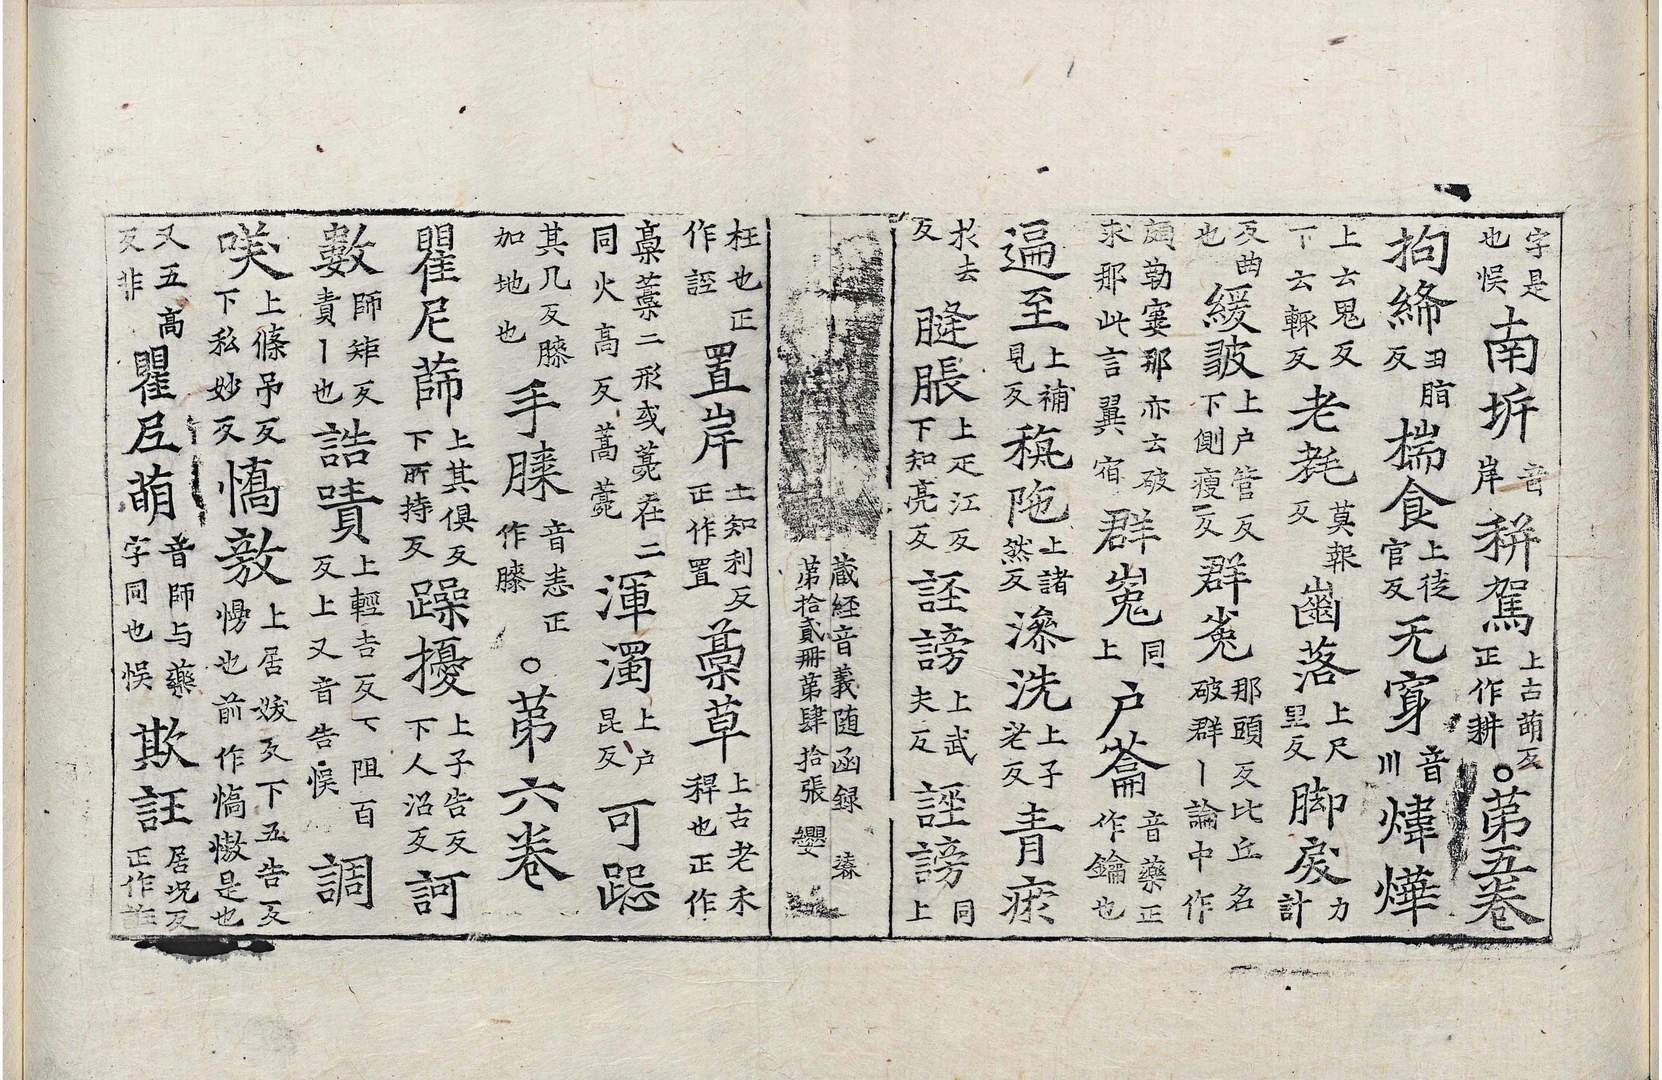 字是也悮南圻音岸�Preface駕上古萌反正作耕○苐五卷
拘締反㺯脂揣食上徒官反无寊音川煒燁
上云鬼反下云輒反老耄莫報反齒落上尺里反脚戾力計
反曲也緩皷上户管反下側瘦反群㝹那頭反比丘名破群丨論中作
頗勒寠那亦云破求那此言翼宿群㝹同上户蘥音藥正作鑰也
逼至上補見反穐陁上諸然反滲洗上子老反青瘀
扵去反膖脹上疋江反下知亮反誈謗上武夫反誣謗同上
藏経音義随函録 㻞
苐拾貳冊苐肆拾張 纓
枉也正作誈置岸土知利反正作置藁草上古老禾稈也正作
稾藁二形或薧在二同火高反蒿薧渾濁上户昆反可跽
其几反膝加地也手膝音悉正作膝○苐六卷
瞿尼䔮上其俱反下所持反躁擾上子告反下人沼反訶
數師矩反責丨也誥嘖上輕吉反下阻百反上又音告悮調
㗛上條吊反下私妙反憍敖上居㚵反下五告反㑃也前作憍慠是也
又五高反非瞿㞐萠音師与藥字同也悮欺誑居况反正作詐